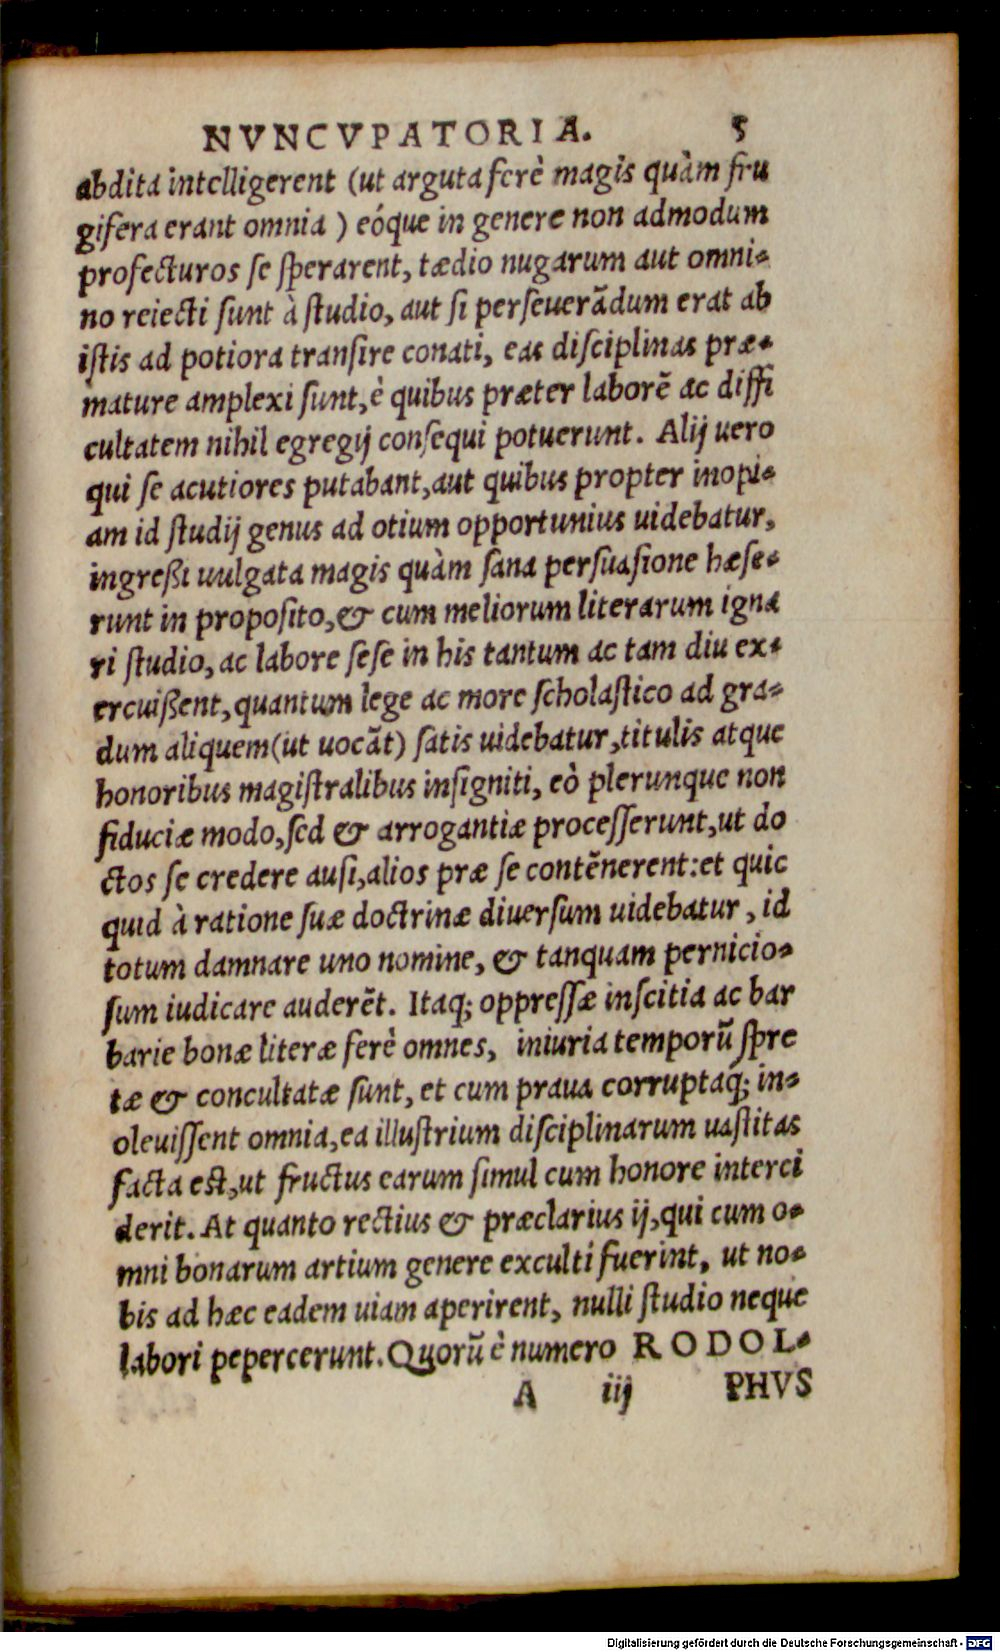 NVNCVPATORIA. 5
abdita intelligerent (ut arguta ferè magis quàm fru
gifera erant omnia ) eóque in genere non admodum
profecturos se sperarent, tædio nugarum aut omni-
no reiecti sunt à studio, aut si perseuerãdum erat ab
istis ad potiora transire conati, eas disciplinas præ-
mature amplexi sunt, è quibus præter laborẽ ac diffi
cultatem nihil egregij consequi potuerunt. Alij uero
qui se acutiores putabant, aut quibus propter inopi-
am id studij genus ad otium opportunius uidebatur,
ingreßi uulgata magis quàm sana persuasione hæse-
runt in proposito, & cum meliorum literarum igna
ri studio, ac labore sese in his tantum ac tam diu ex-
ercuißent, quantum lege ac more scholastico ad gra-
dum aliquem (ut uocãt) satis uidebatur, titulis atque
honoribus magistralibus insigniti, eò plerunque non
fiduciæ modo, sed & arrogantiæ processerunt, ut do
ctos se credere ausi, alios præ se contẽnerent: et quic
quid à ratione suæ doctrinæ diuersum uidebatur, id
totum damnare uno nomine, & tanquam pernicio-
sum iudicare auderẽt. Itaq; oppressæ inscitia ac bar
barie bonæ literæ ferè omnes, iniuria temporũ spre
tæ & concultatæ sunt, et cum praua corruptaq́; in-
oleuissent omnia, ea illustrium disciplinarum uastitas
facta est, ut fructus earum simul cum honore interci
derit. At quanto rectius & præclarius ij, qui cum o-
mni bonarum artium genere exculti fuerint, ut no-
bis ad hæc eadem uiam aperirent, nulli studio neque
labori pepercerunt. Quorũ è numero RODOL-
A iij PHVS
Digitalisierung gefördert durch die Deutsche Forschungsgemeinschaft - DFG